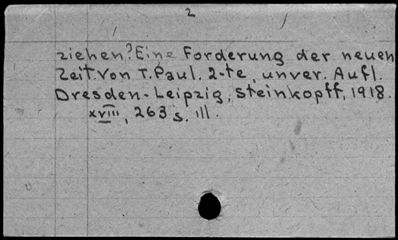 2
ziehen? Eine Forderung der neuen
Zeit. Von T. Paul. 2-te, unver. Aufl.
Dresden-Leipzig, Steinkopff, 1918.
XVIII, 263 s. Ill.